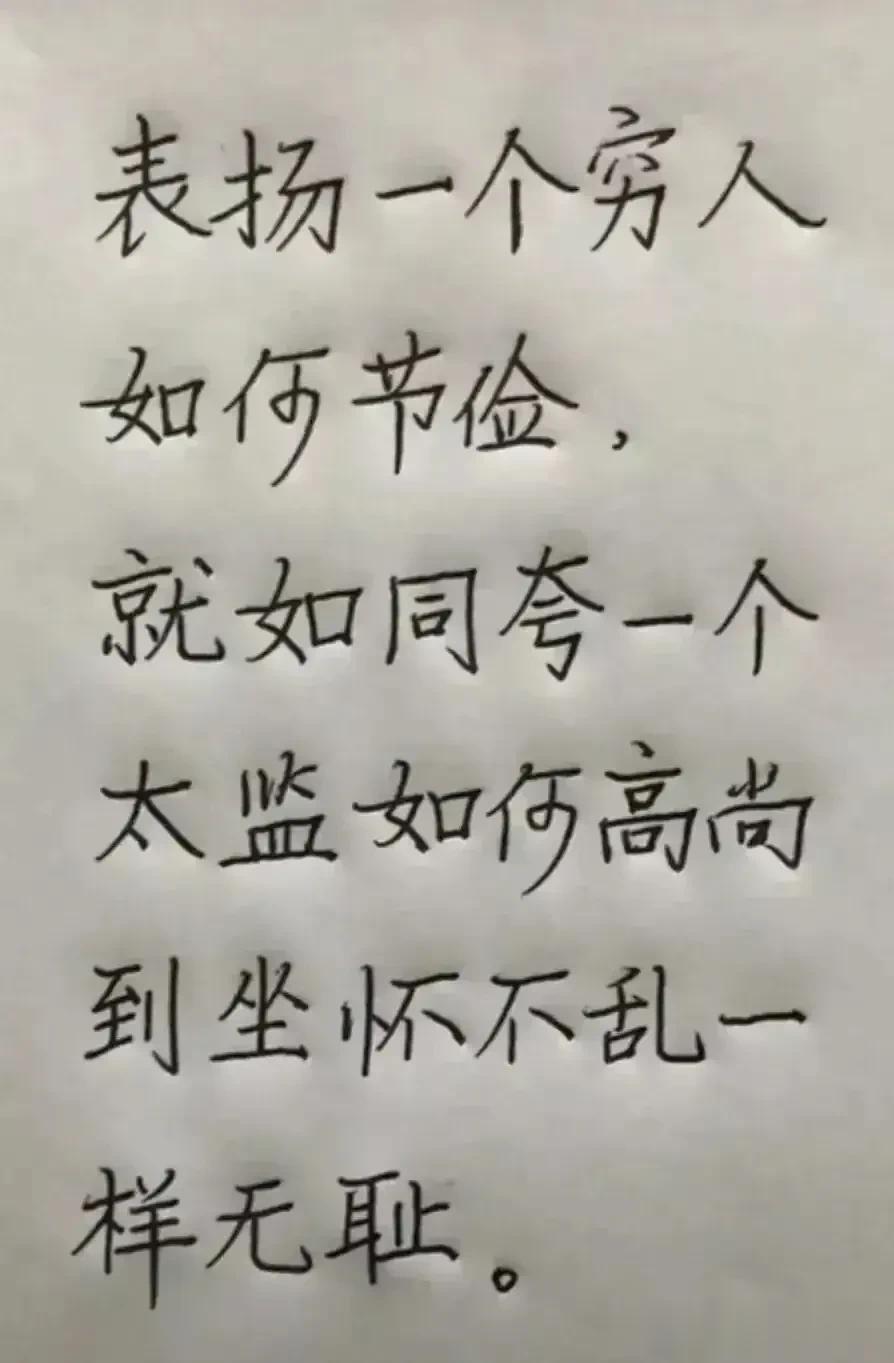 表扬一个穷人
如何节俭，
就如同夸一个
太监如何高尚
到坐怀不乱一
样无耻。